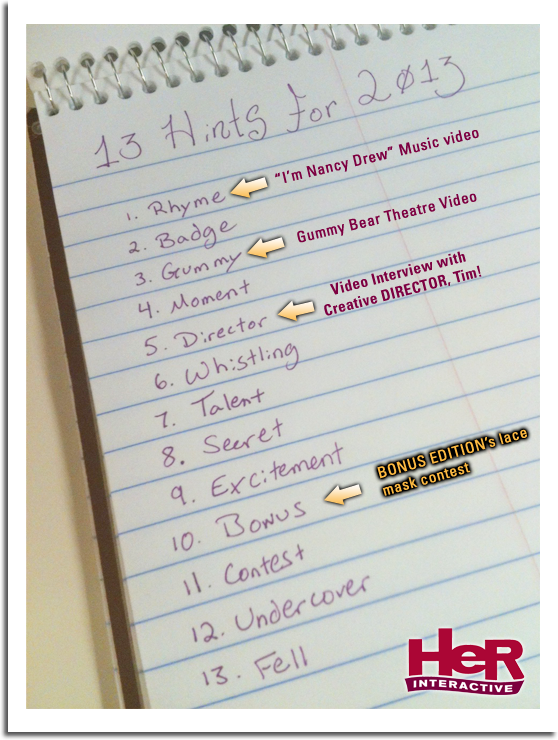 13 Hints for 2013
1. Rhyme
"I'm Nancy Drew" Music video
2. Badge
3. Gummy
Gummy Bear Theatre Video
4. Moment
5. Director
Video Interview with
Creative DIRECTOR, Tim!
6. Whistling
7. Talent
8. Secret
9. Excitement
10. Bonus
BONUS EDITION's lace
mask contest
11. Contest
12. Undercover
13. Fell
HeR
INTERACTIVE